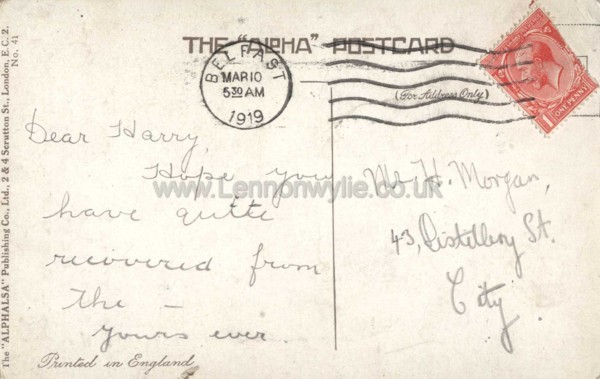 THE "ALPHA" POSTCARD
BELFAST
MAR 10
5 30 AM
1919
(For Address Only)
ONE PENNY
Dear Harry,
Hope you
have quite
recovered from
the —
yours ever.
Mr H. Morgan,
43, Distillery St.
City.
www.Lennonwylie.co.uk
Printed in England
The "ALPHALSA" Publishing Co., Ltd., 2 & 4 Scrutton St., London, E.C. 2.
No. 41